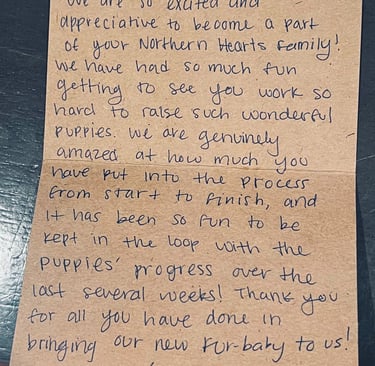 We are so excited and
appreciative to become a part
of your Northern Hearts family!
We have had so much fun
getting to see you work so
hard to raise such wonderful
puppies. We are genuinely
amazed at how much you
have put into the process
from start to finish, and
it has been so fun to be
kept in the loop with the
puppies' progress over the
last several weeks! Thank you
for all you have done in
bringing our new fur-baby to us!